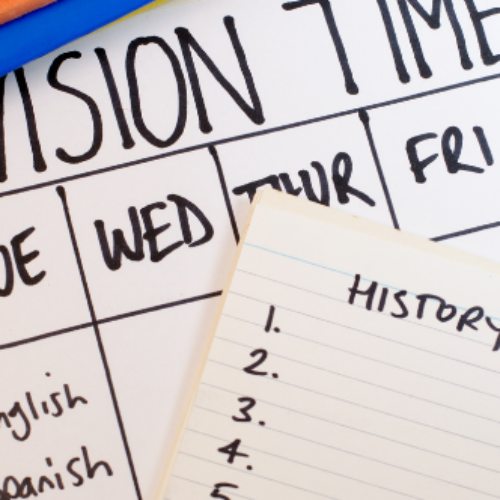 VISION TIME
UE WED THUR FRI
nglish
panish
HISTORY
1.
2.
3.
4.
5